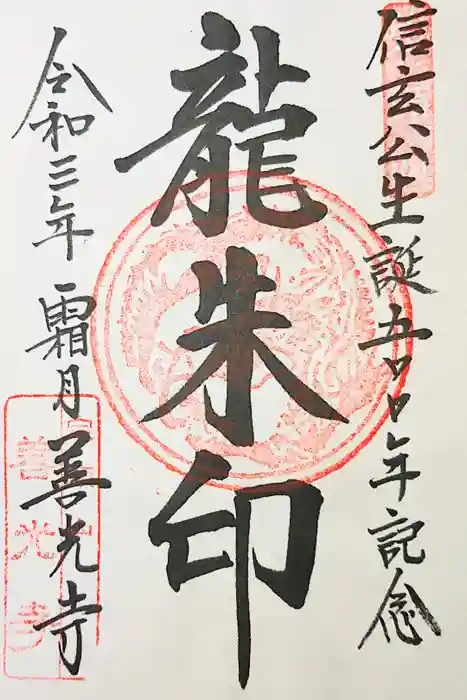 信玄公生誕五〇〇年記念
龍朱印
令和三年霜月善光寺
善光寺